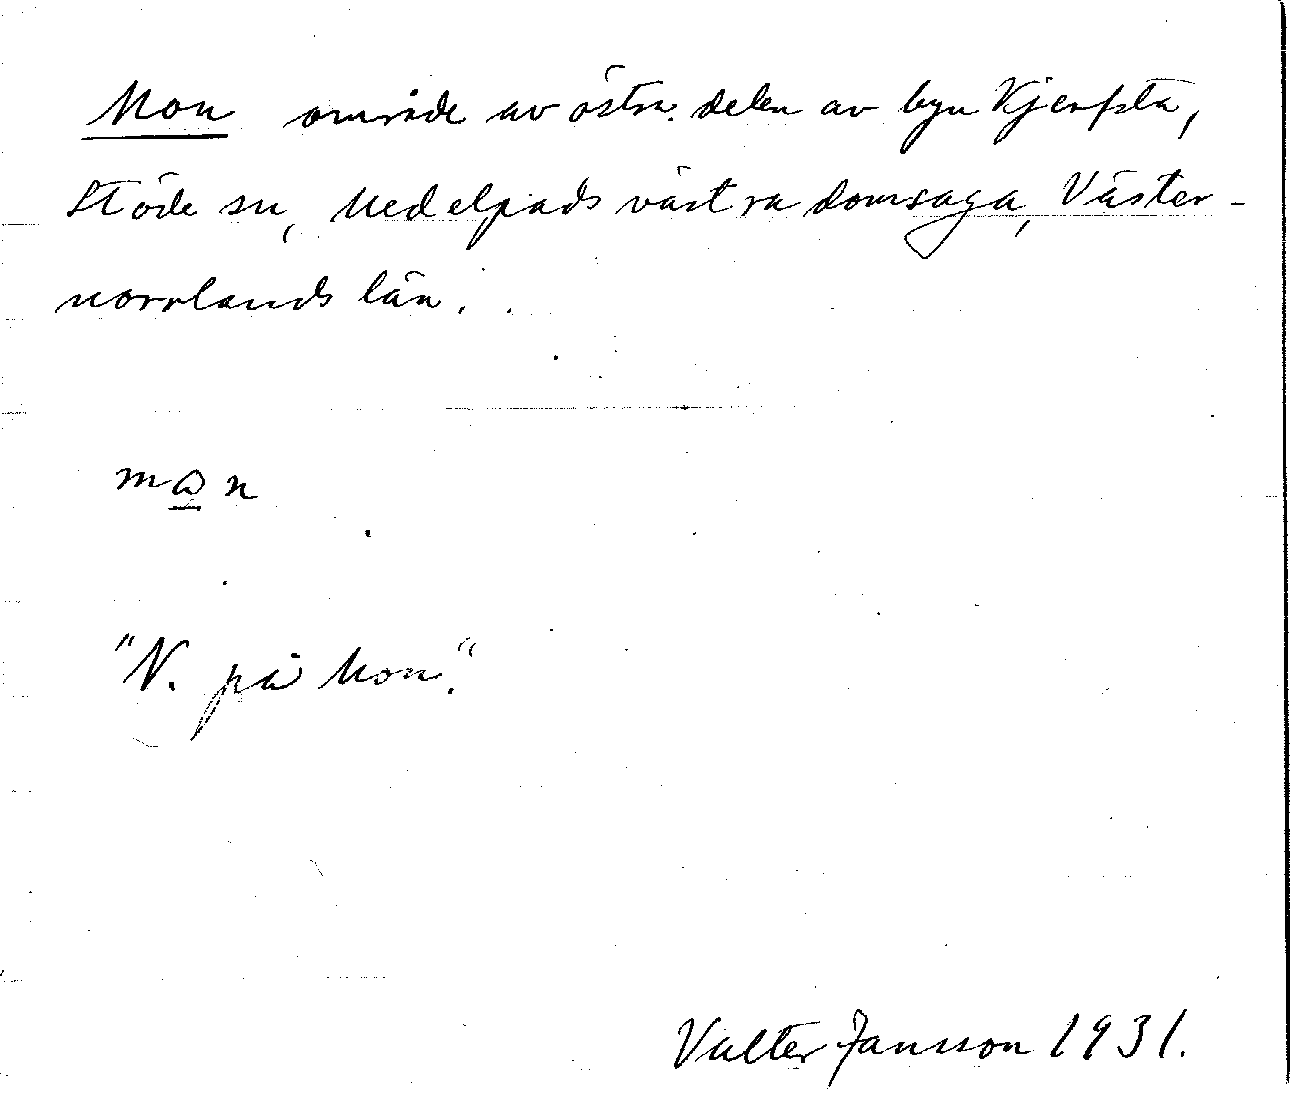 Mon område av östra delen av byn Kjerfsta,
Stöde sn, Medelpads västra domsaga, Väster-
norrlands län.
man
"N. på Mon."
Valter Jansson 1931.